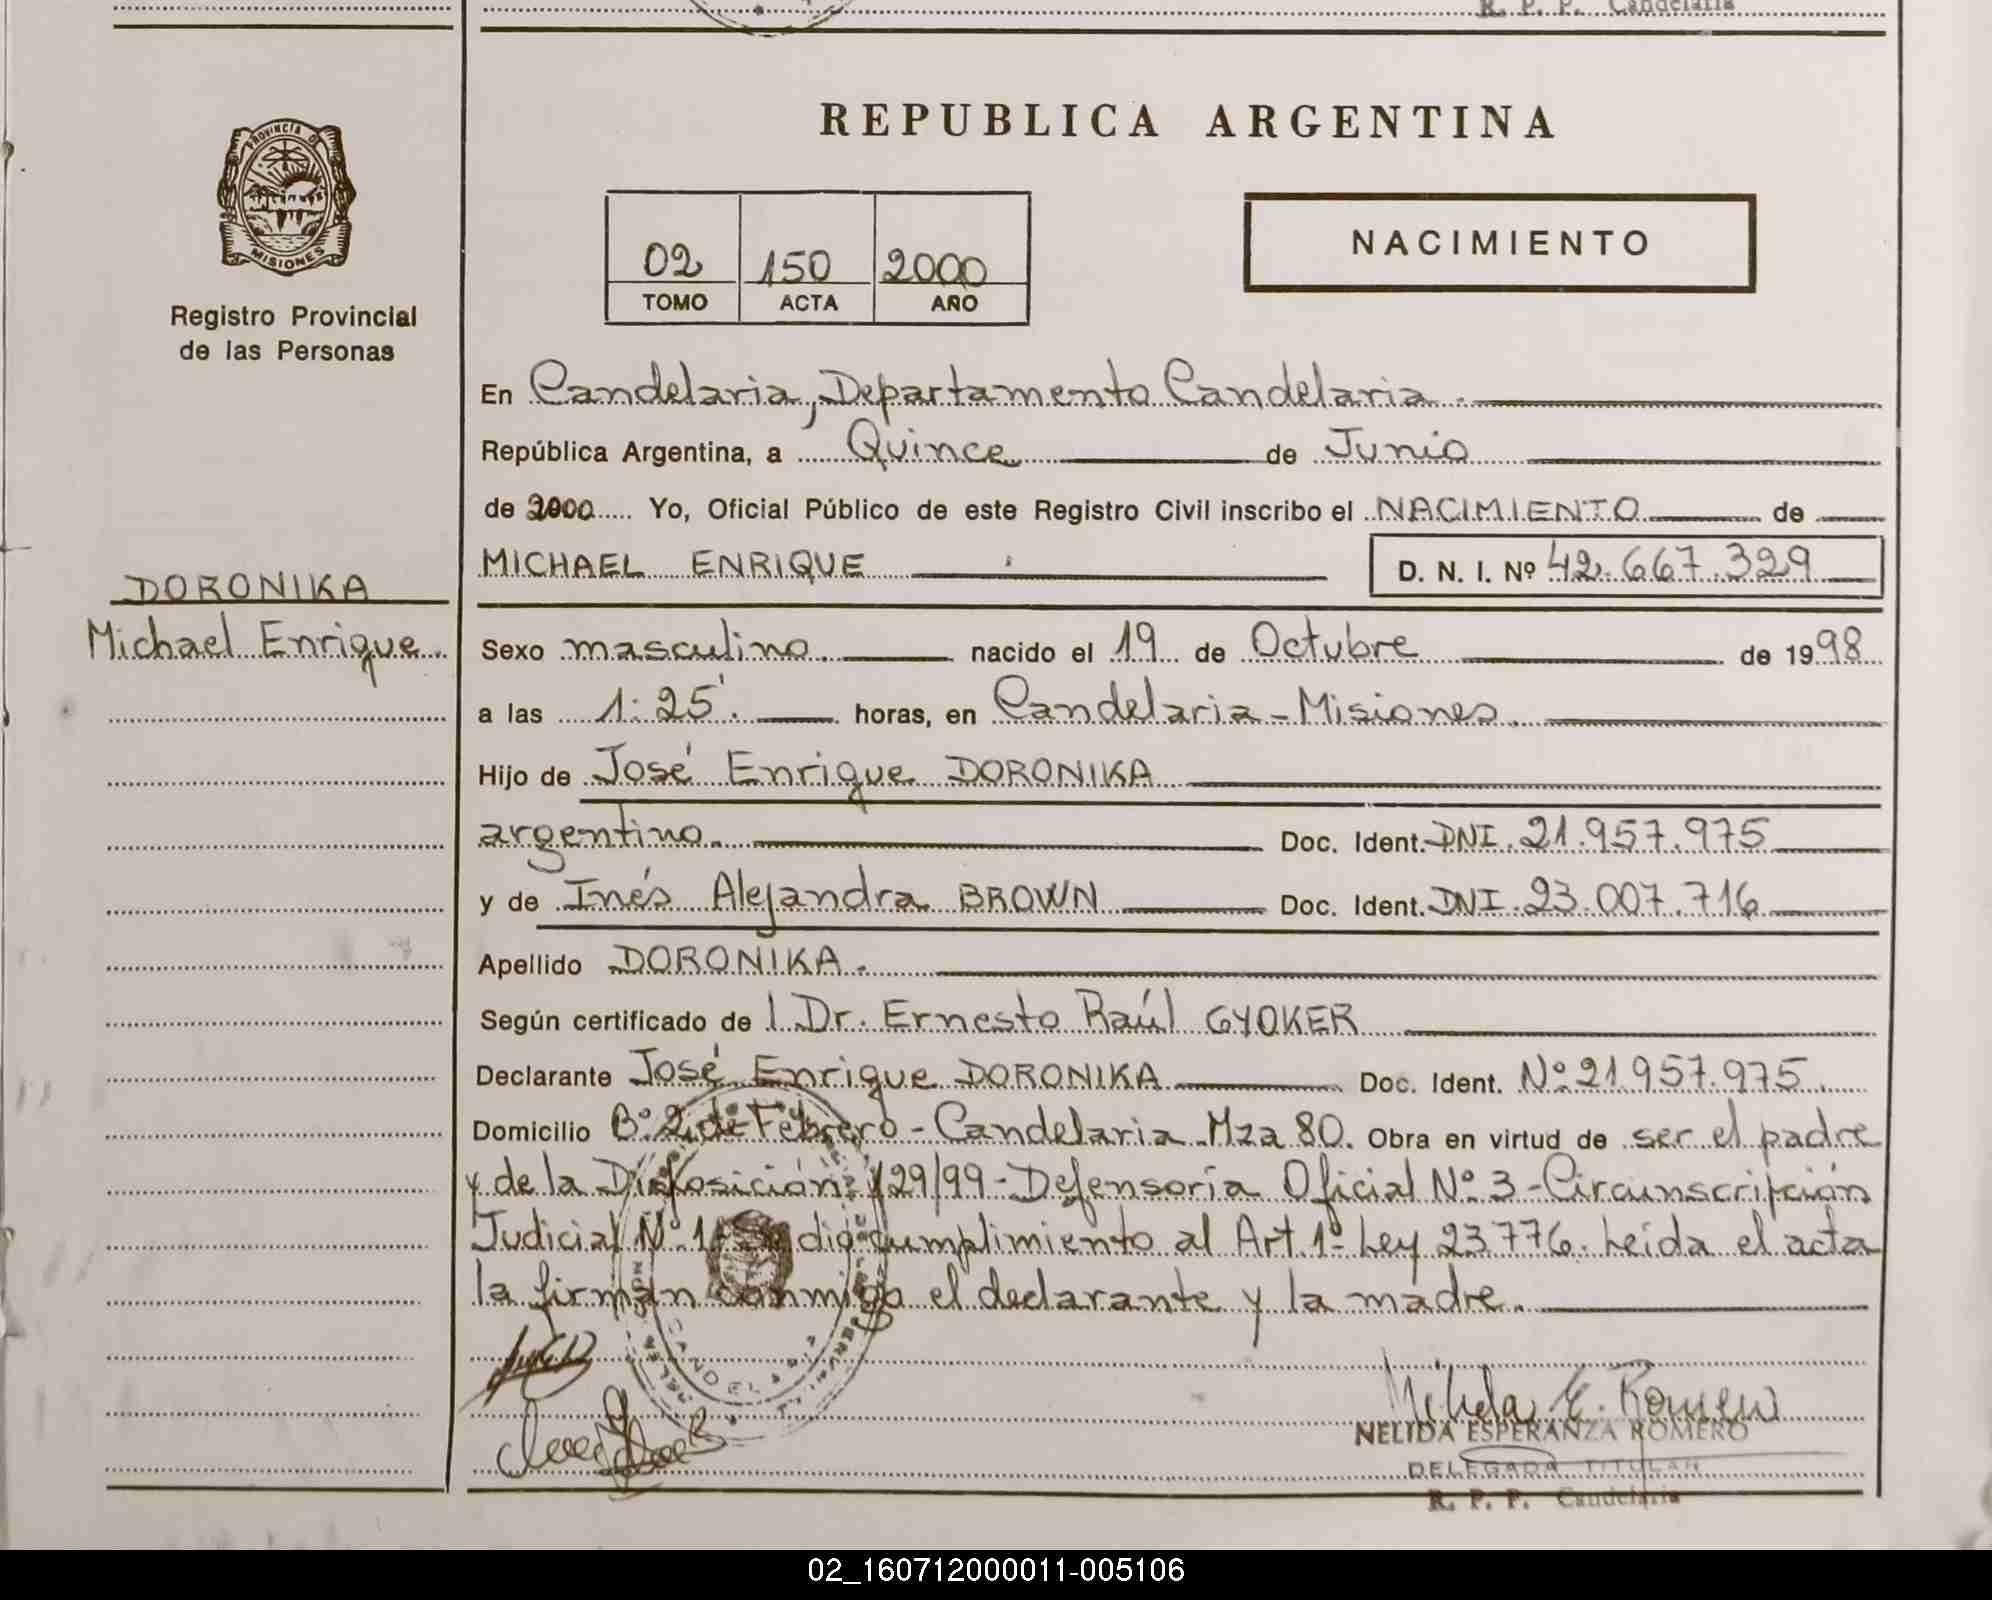 R. P. P. Candelaria
PROVINCIA DE
MISIONES
Registro Provincial
de las Personas
DORONIKA
Michael Enrique.
REPUBLICA ARGENTINA
02 150 2000
TOMO ACTA AÑO
NACIMIENTO
En Candelaria, Departamento Candelaria.
República Argentina, a Quince de Junio
de 2000 Yo, Oficial Público de este Registro Civil inscribo el NACIMIENTO de
MICHAEL ENRIQUE D. N. I. Nº 42.667.329
Sexo masculino. nacido el 19 de Octubre de 1998
a las 1:25'. horas, en Candelaria-Misiones.
Hijo de José Enrique DORONIKA
argentino. Doc. Ident. DNI. 21.957.975
y de Inés Alejandra BROWN Doc. Ident. DNI. 23.007.716
Apellido DORONIKA.
Según certificado de l Dr. Ernesto Raúl GYOKER
Declarante José Enrique DORONIKA Doc. Ident. Nº 21957.975.
Domicilio Bº 2 de Febrero - Candelaria Mza 80. Obra en virtud de ser el padre
y de la Disposición 129/99 - Defensoría Oficial Nº 3 - Circunscripción
Judicial Nº 1. Se dio cumplimiento al Art. 1º Ley 23776. Leída el acta
la firman conmigo el declarante y la madre.
Nelida E. Romero
NELIDA ESPERANZA ROMERO
DELEGADA TITULAR
R. P. P. Candelaria
02_160712000011-005106